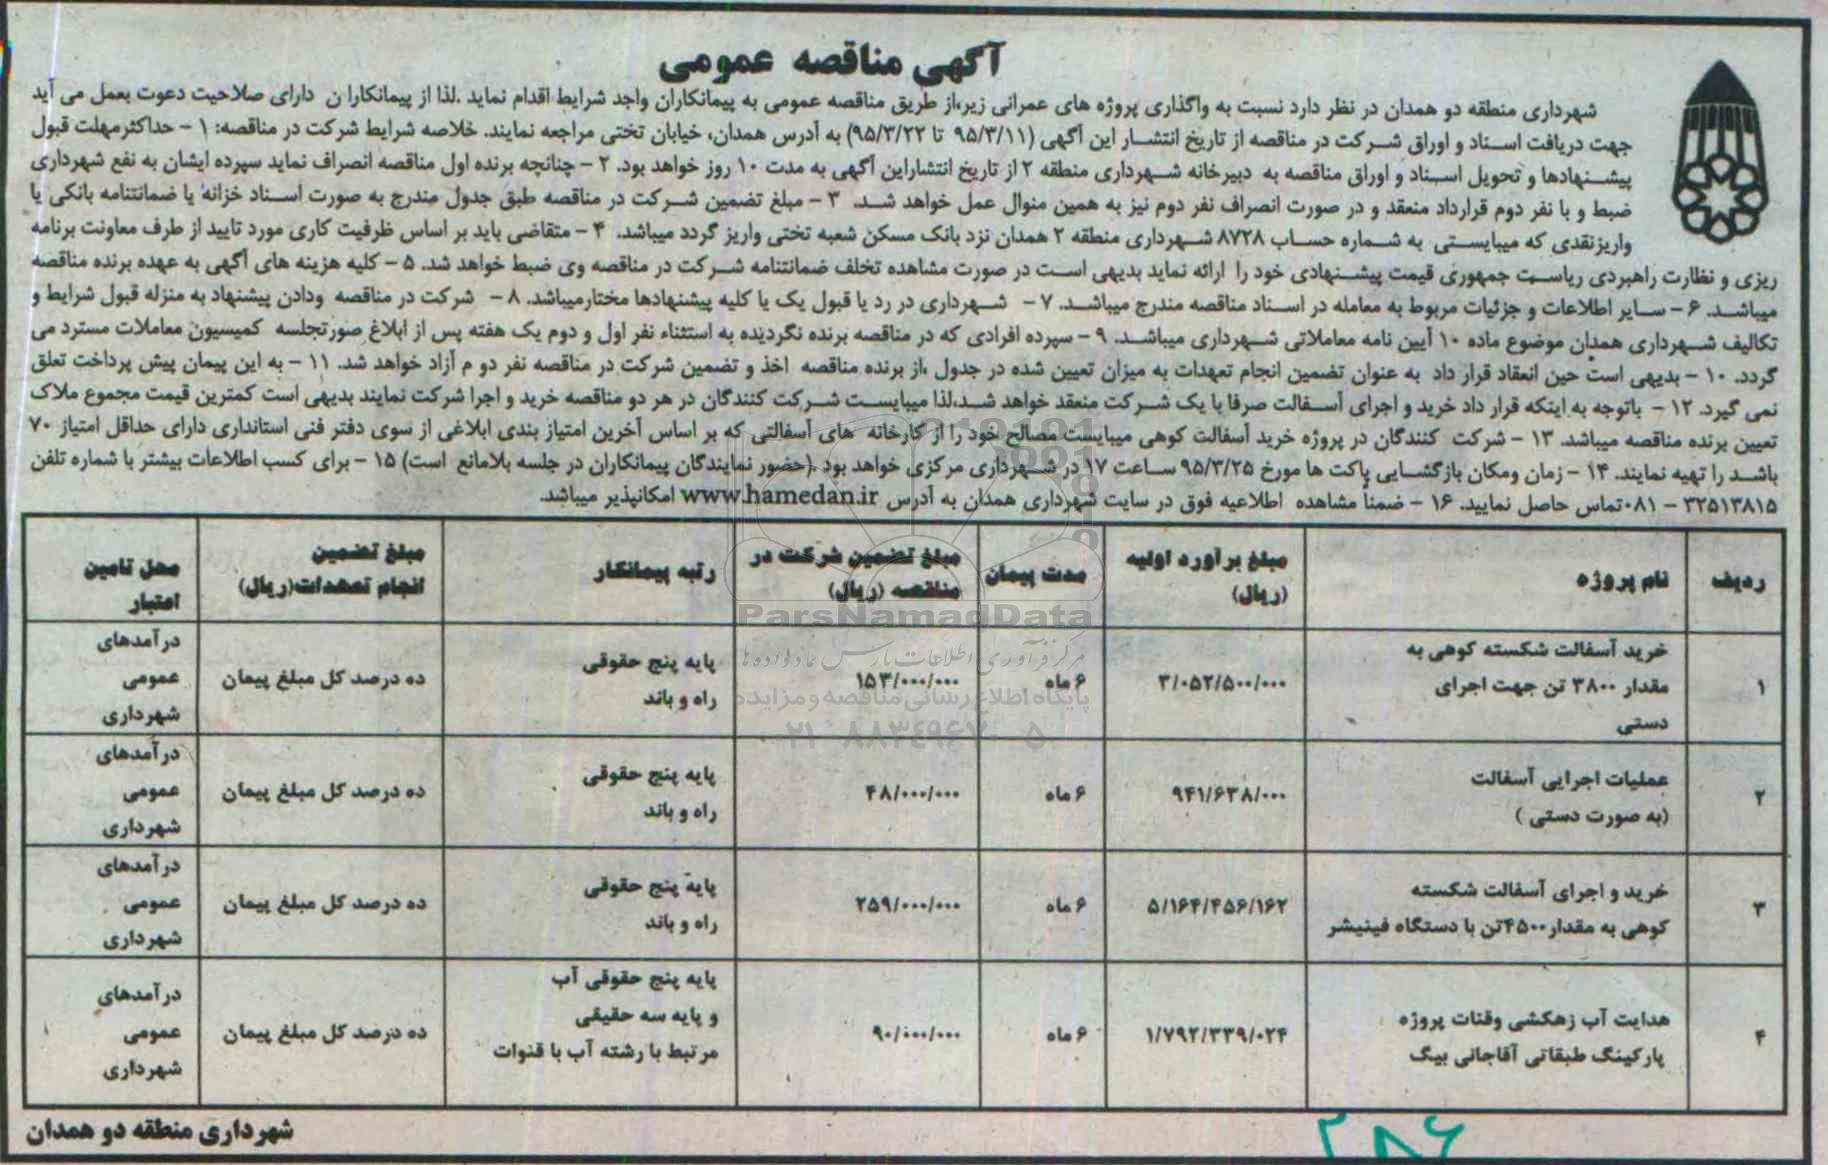 آگهی مناقصه عمومی
شهرداری منطقه دو همدان در نظر دارد نسبت به واگذاری پروژه های عمرانی زیر،از طریق مناقصه عمومی به پیمانکاران واجد شرایط اقدام نماید .لذا از پیمانکارا ن دارای صلاحیت دعوت بعمل می آید
جهت دریافت اسناد و اوراق شرکت در مناقصه از تاریخ انتشار این آگهی (۹۵/۳/۱۱ تا ۹۵/۳/۲۲) به آدرس همدان، خیابان تختی مراجعه نمایند. خلاصه شرایط شرکت در مناقصه: ۱ - حداکثرمهلت قبول
پیشنهادها و تحویل اسناد و اوراق مناقصه به دبیرخانه شهرداری منطقه ۲ از تاریخ انتشاراین آگهی به مدت ۱۰ روز خواهد بود. ۲ - چنانچه برنده اول مناقصه انصراف نماید سپرده ایشان به نفع شهرداری
ضبط و با نفر دوم قرارداد منعقد و در صورت انصراف نفر دوم نیز به همین منوال عمل خواهد شد. ۳ - مبلغ تضمین شرکت در مناقصه طبق جدول مندرج به صورت اسناد خزانه یا ضمانتنامه بانکی یا
واریزنقدی که میبایستی به شماره حساب ۸۷۲۸ شهرداری منطقه ۲ همدان نزد بانک مسکن شعبه تختی واریز گردد میباشد. ۴ - متقاضی باید بر اساس ظرفیت کاری مورد تایید از طرف معاونت برنامه
ریزی و نظارت راهبردی ریاست جمهوری قیمت پیشنهادی خود را ارائه نماید بدیهی است در صورت مشاهده تخلف ضمانتنامه شرکت در مناقصه وی ضبط خواهد شد. ۵ - کلیه هزینه های آگهی به عهده برنده مناقصه
میباشد. ۶ - سایر اطلاعات و جزئیات مربوط به معامله در اسناد مناقصه مندرج میباشد. ۷ - شهرداری در رد یا قبول یک یا کلیه پیشنهادها مختارمیباشد. ۸ - شرکت در مناقصه ودادن پیشنهاد به منزله قبول شرایط و
تکالیف شهرداری همدان موضوع ماده ۱۰ آیین نامه معاملاتی شهرداری میباشد. ۹ - سپرده افرادی که در مناقصه برنده نگردیده به استثناء نفر اول و دوم یک هفته پس از ابلاغ صورتجلسه کمیسیون معاملات مسترد می
گردد. ۱۰ - بدیهی است حین انعقاد قرار داد به عنوان تضمین انجام تعهدات به میزان تعیین شده در جدول ،از برنده مناقصه اخذ و تضمین شرکت در مناقصه نفر دو م آزاد خواهد شد. ۱۱ - به این پیمان پیش پرداخت تعلق
نمی گیرد. ۱۲ - باتوجه به اینکه قرار داد خرید و اجرای آسفالت صرفا با یک شرکت منعقد خواهد شد،لذا میبایست شرکت کنندگان در هر دو مناقصه خرید و اجرا شرکت نمایند بدیهی است کمترین قیمت مجموع ملاک
تعیین برنده مناقصه میباشد. ۱۳ - شرکت کنندگان در پروژه خرید آسفالت کوهی میبایست مصالح خود را از کارخانه های آسفالتی که بر اساس آخرین امتیاز بندی ابلاغی از سوی دفتر فنی استانداری دارای حداقل امتیاز ۷۰
باشد را تهیه نمایند. ۱۴ - زمان ومکان بازگشایی پاکت ها مورخ ۹۵/۳/۲۵ ساعت ۱۷ در شهرداری مرکزی خواهد بود .(حضور نمایندگان پیمانکاران در جلسه بلامانع است) ۱۵ - برای کسب اطلاعات بیشتر با شماره تلفن
۳۲۵۱۳۸۱۵ - ۰۸۱تماس حاصل نمایید. ۱۶ - ضمناً مشاهده اطلاعیه فوق در سایت شهرداری همدان به آدرس www.hamedan.ir امکانپذیر میباشد.
ردیف نام پروژه مبلغ برآورد اولیه (ریال) مدت پیمان مبلغ تضمین شرکت در مناقصه (ریال) رتبه پیمانکار مبلغ تضمین انجام تعهدات(ریال) محل تامین اعتبار
۱ خرید آسفالت شکسته کوهی به مقدار ۳۸۰۰ تن جهت اجرای دستی ۳/۰۵۲/۵۰۰/۰۰۰ ۶ ماه ۱۵۳/۰۰۰/۰۰۰ پایه پنج حقوقی راه و باند ده درصد کل مبلغ پیمان درآمدهای عمومی شهرداری
۲ عملیات اجرایی آسفالت (به صورت دستی ) ۹۴۱/۶۳۸/۰۰۰ ۶ ماه ۴۸/۰۰۰/۰۰۰ پایه پنج حقوقی راه و باند ده درصد کل مبلغ پیمان درآمدهای عمومی شهرداری
۳ خرید و اجرای آسفالت شکسته کوهی به مقدار۴۵۰۰تن با دستگاه فینیشر ۵/۱۶۴/۴۵۶/۱۶۲ ۶ ماه ۲۵۹/۰۰۰/۰۰۰ پایه پنج حقوقی راه و باند ده درصد کل مبلغ پیمان درآمدهای عمومی شهرداری
۴ هدایت آب زهکشی وقنات پروژه پارکینگ طبقاتی آقاجانی بیگ ۱/۷۹۲/۳۳۹/۰۲۴ ۶ ماه ۹۰/۰۰۰/۰۰۰ پایه پنج حقوقی آب و پایه سه حقیقی مرتبط با رشته آب با قنوات ده درصد کل مبلغ پیمان درآمدهای عمومی شهرداری
ParsNamadData
مرکز فرآوری اطلاعات پارس نماد داده ها
پایگاه اطلاع رسانی مناقصه و مزایده
۰۲۱-۸۸۳۴۹۶۷۰-۵
شهرداری منطقه دو همدان
۲۸۶